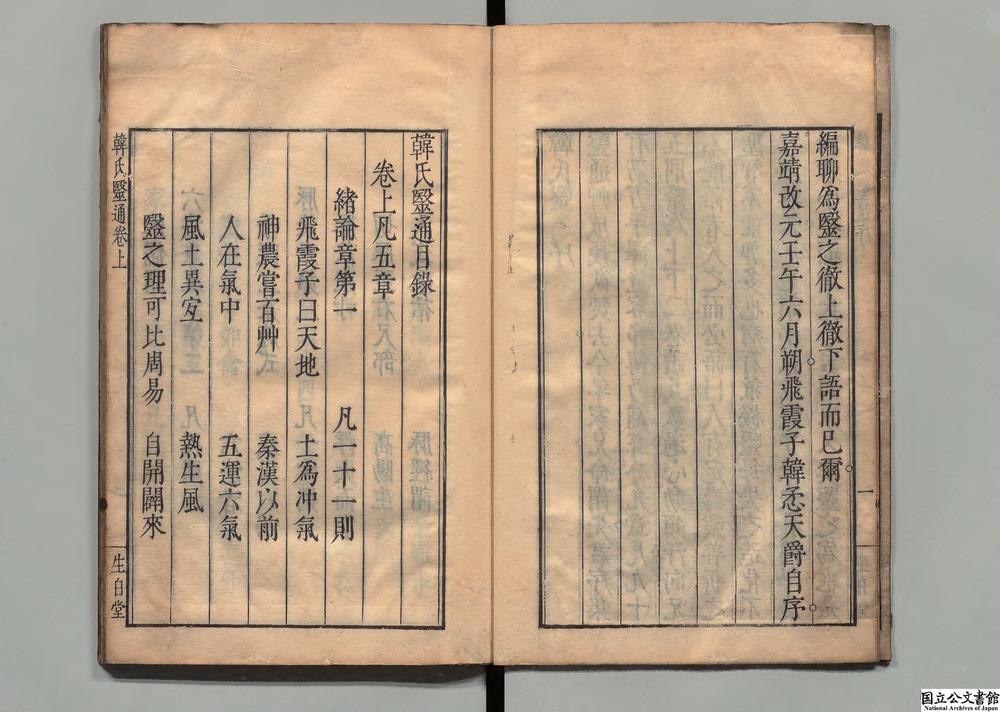 編聊為毉之徹上徹下語而已爾
嘉靖改元壬午六月朔飛霞子韓悉天爵自序
一
韓氏毉通目錄
卷上凡五章
緒論章第一　凡一十一則
飛霞子曰天地　土為冲氣
神農嘗百艸　秦漢以前
人在氣中　五運六氣
風土異宐　熱生風
毉之理可比周易　自開闢來
韓氏毉通卷上
生白堂
国立公文書館
National Archives of Japan